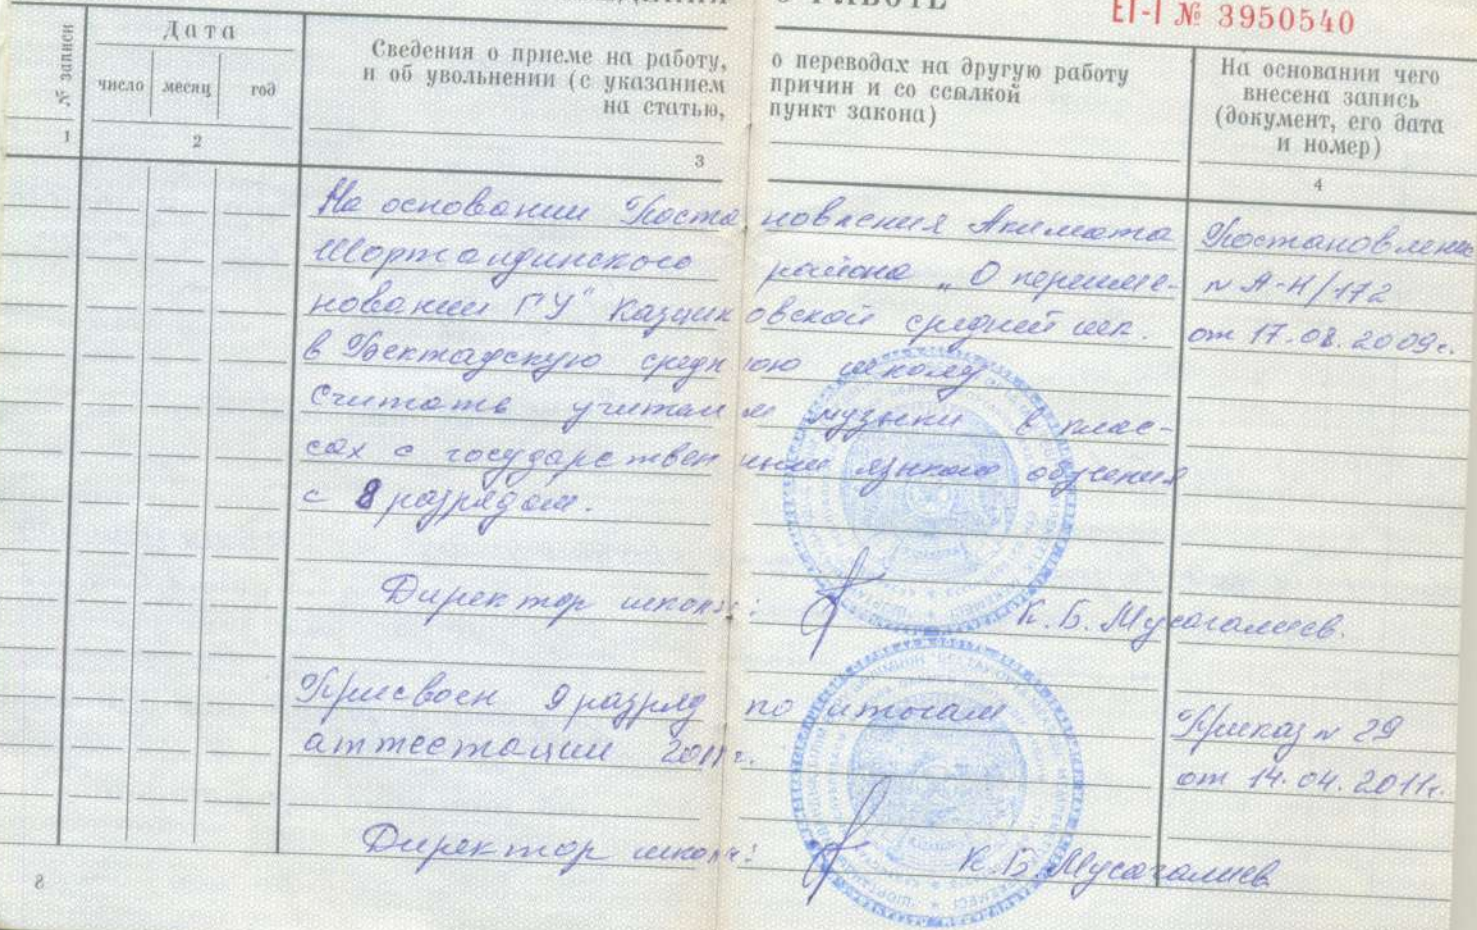 О РАБОТЕ
ЕТ-I № 3950540
№ записи
Дата
число месяц год
Сведения о приеме на работу, о переводах на другую работу
и об увольнении (с указанием причин и со ссылкой
на статью, пункт закона)
На основании чего
внесена запись
(документ, его дата
и номер)
1 2 3 4
На основании Постановления Акимата Постановление
Шортандинского района „О переиме- № А-Н/172
новании ГУ" Казциковской средней шк. от 17.08.2009г.
в Бектаускую среднюю школу
Считать учителем музыки в клас-
сах с государственным языком обучения
с 8 разрядом.
Директор школы: К.Б. Мусагалиев.
Присвоен 9 разряд по итогам Приказ № 29
аттестации 2011г. от 14.04.2011г.
Директор школы: К.Б. Мусагалиев
8